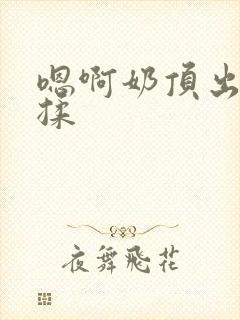 嗯啊奶頂出
揉
夜舞飛花